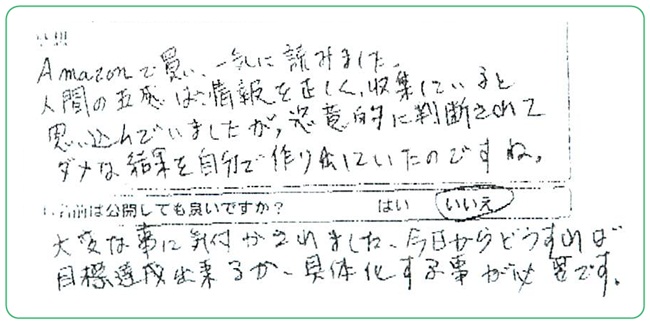 感想
Amazonで買い、一気に読みました。
人間の五感は情報を正しく、収集していると
思い込んでいましたが、恣意的に判断されて
ダメな結果を自分で作り出していたのですね。
お名前は公開しても良いですか？ はい いいえ
大変な事に気付かされました。今日からどうすれば
目標達成出来るか、具体化する事が必要です。